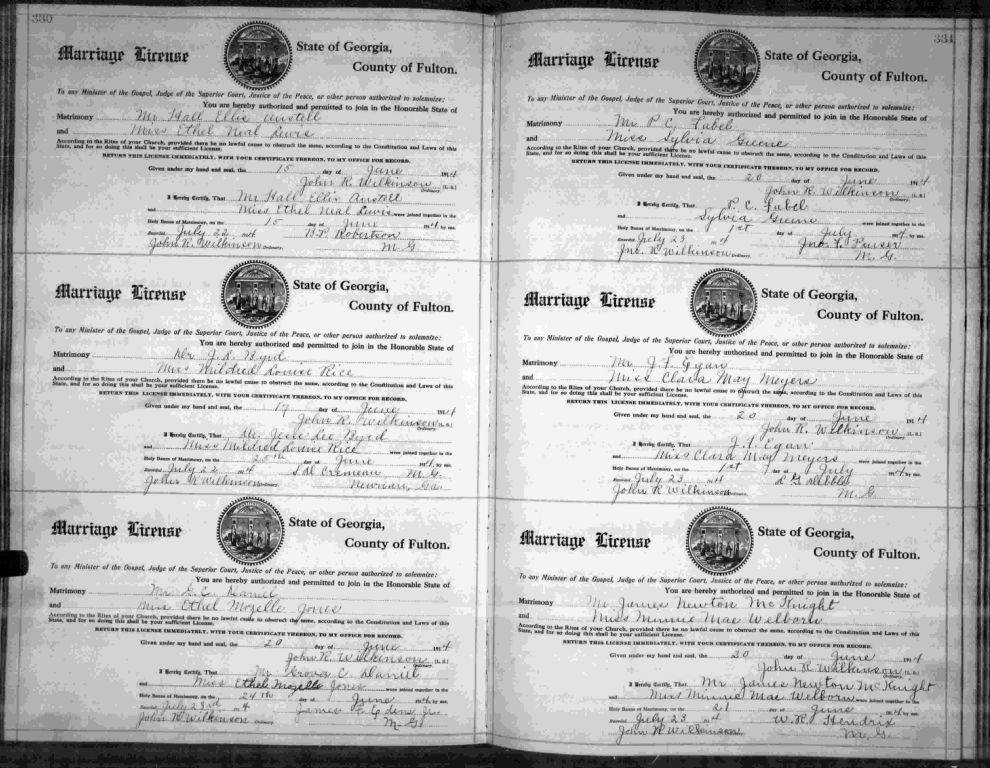 330
Marriage License
State of Georgia,
County of Fulton.
To any Minister of the Gospel, Judge of the Superior Court, Justice of the Peace, or other person authorized to solemnize:
You are hereby authorized and permitted to join in the Honorable State of
Matrimony Mr Hall Ellis Austell
and Miss Ethel Neal Lewis
According to the Rites of your Church, provided there be no lawful cause to obstruct the same, according to the Constitution and Laws of this
State, and for so doing this shall be your sufficient License.
RETURN THIS LICENSE IMMEDIATELY, WITH YOUR CERTIFICATE THEREON, TO MY OFFICE FOR RECORD.
Given under my hand and seal, the 15 day of June 1914
John R. Wilkinson (L. S.)
Ordinary.
I Hereby Certify, That Mr Hall Ellis Austell
and Miss Ethel Neal Lewis were joined together in the
Holy Banes of Matrimony, on the 15 day of June 1914 by me.
Recorded July 22 1914 B. P. Robertson
John R. Wilkinson Ordinary. M. G
Marriage License
State of Georgia,
County of Fulton.
To any Minister of the Gospel, Judge of the Superior Court, Justice of the Peace, or other person authorized to solemnize:
You are hereby authorized and permitted to join in the Honorable State of
Matrimony Dr J. L. Byrd
and Miss Mildred Louise Rice
According to the Rites of your Church, provided there be no lawful cause to obstruct the same, according to the Constitution and Laws of this
State, and for so doing this shall be your sufficient License.
RETURN THIS LICENSE IMMEDIATELY, WITH YOUR CERTIFICATE THEREON, TO MY OFFICE FOR RECORD.
Given under my hand and seal, the 17 day of June 1914
John R. Wilkinson (L. S.)
Ordinary.
I Hereby Certify, That Dr. Jesse Lee Byrd
and Miss Mildred Louise Rice were joined together in the
Holy Banes of Matrimony, on the 25th day of June 1914 by me.
Recorded July 22 1914 M. G.
John R Wilkinson Ordinary. Newnan, Ga.
Marriage License
State of Georgia,
County of Fulton.
To any Minister of the Gospel, Judge of the Superior Court, Justice of the Peace, or other person authorized to solemnize:
You are hereby authorized and permitted to join in the Honorable State of
Matrimony Mr G. C. Daniel
and Miss Ethel Mozelle Jones
According to the Rites of your Church, provided there be no lawful cause to obstruct the same, according to the Constitution and Laws of this
State, and for so doing this shall be your sufficient License.
RETURN THIS LICENSE IMMEDIATELY, WITH YOUR CERTIFICATE THEREON, TO MY OFFICE FOR RECORD.
Given under my hand and seal, the 20 day of June 1914
John R. Wilkinson (L. S.)
Ordinary.
I Hereby Certify, That Mr. Grover C. Daniel
and Miss Ethel Mozelle Jones were joined together in the
Holy Banes of Matrimony, on the 24th day of June 1914 by me.
Recorded July 23rd 1914 James F. Eden Jr.
John R Wilkinson Ordinary. M. G.
331
Marriage License
State of Georgia,
County of Fulton.
To any Minister of the Gospel, Judge of the Superior Court, Justice of the Peace, or other person authorized to solemnize:
You are hereby authorized and permitted to join in the Honorable State of
Matrimony Mr P. C. Fabel
and Miss Sylvia Greene
According to the Rites of your Church, provided there be no lawful cause to obstruct the same, according to the Constitution and Laws of this
State, and for so doing this shall be your sufficient License.
RETURN THIS LICENSE IMMEDIATELY, WITH YOUR CERTIFICATE THEREON, TO MY OFFICE FOR RECORD.
Given under my hand and seal, the 20 day of June 1914
John R. Wilkinson (L. S.)
Ordinary.
I Hereby Certify, That P. C. Fabel
and Sylvia Greene were joined together in the
Holy Banes of Matrimony, on the 1st day of July 1914 by me.
Recorded July 23 1914 Jno. F. Purser
Jno. R Wilkinson Ordinary. M. G.
Marriage License
State of Georgia,
County of Fulton.
To any Minister of the Gospel, Judge of the Superior Court, Justice of the Peace, or other person authorized to solemnize:
You are hereby authorized and permitted to join in the Honorable State of
Matrimony Mr. J. F. Egan
and Miss Clara May Meyers
According to the Rites of your Church, provided there be no lawful cause to obstruct the same, according to the Constitution and Laws of this
State, and for so doing this shall be your sufficient License.
RETURN THIS LICENSE IMMEDIATELY, WITH YOUR CERTIFICATE THEREON, TO MY OFFICE FOR RECORD.
Given under my hand and seal, the 20 day of June 1914
John R. Wilkinson (L. S.)
Ordinary.
I Hereby Certify, That J. F. Egan
and Miss Clara May Meyers were joined together in the
Holy Banes of Matrimony, on the 1st day of July 1914 by me.
Recorded July 23 1914
John R Wilkinson Ordinary. M. G.
Marriage License
State of Georgia,
County of Fulton.
To any Minister of the Gospel, Judge of the Superior Court, Justice of the Peace, or other person authorized to solemnize:
You are hereby authorized and permitted to join in the Honorable State of
Matrimony Mr James Newton McKnight
and Miss Minnie Mae Welborn
According to the Rites of your Church, provided there be no lawful cause to obstruct the same, according to the Constitution and Laws of this
State, and for so doing this shall be your sufficient License.
RETURN THIS LICENSE IMMEDIATELY, WITH YOUR CERTIFICATE THEREON, TO MY OFFICE FOR RECORD.
Given under my hand and seal, the 20 day of June 1914
John R Wilkinson (L. S.)
Ordinary.
I Hereby Certify, That Mr. James Newton McKnight
and Miss Minnie Mae Welborn were joined together in the
Holy Banes of Matrimony, on the 21 day of June 1914 by me.
Recorded July 23 1914 W. R. Hendrix
John R Wilkinson Ordinary. M. G.